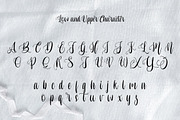 Love and Upper Character
A B C D E F G H I J K L M
N O P Q R S T U V W X Y Z
a b c d e f g h i j k l m n
o p q r s t u v w x y z